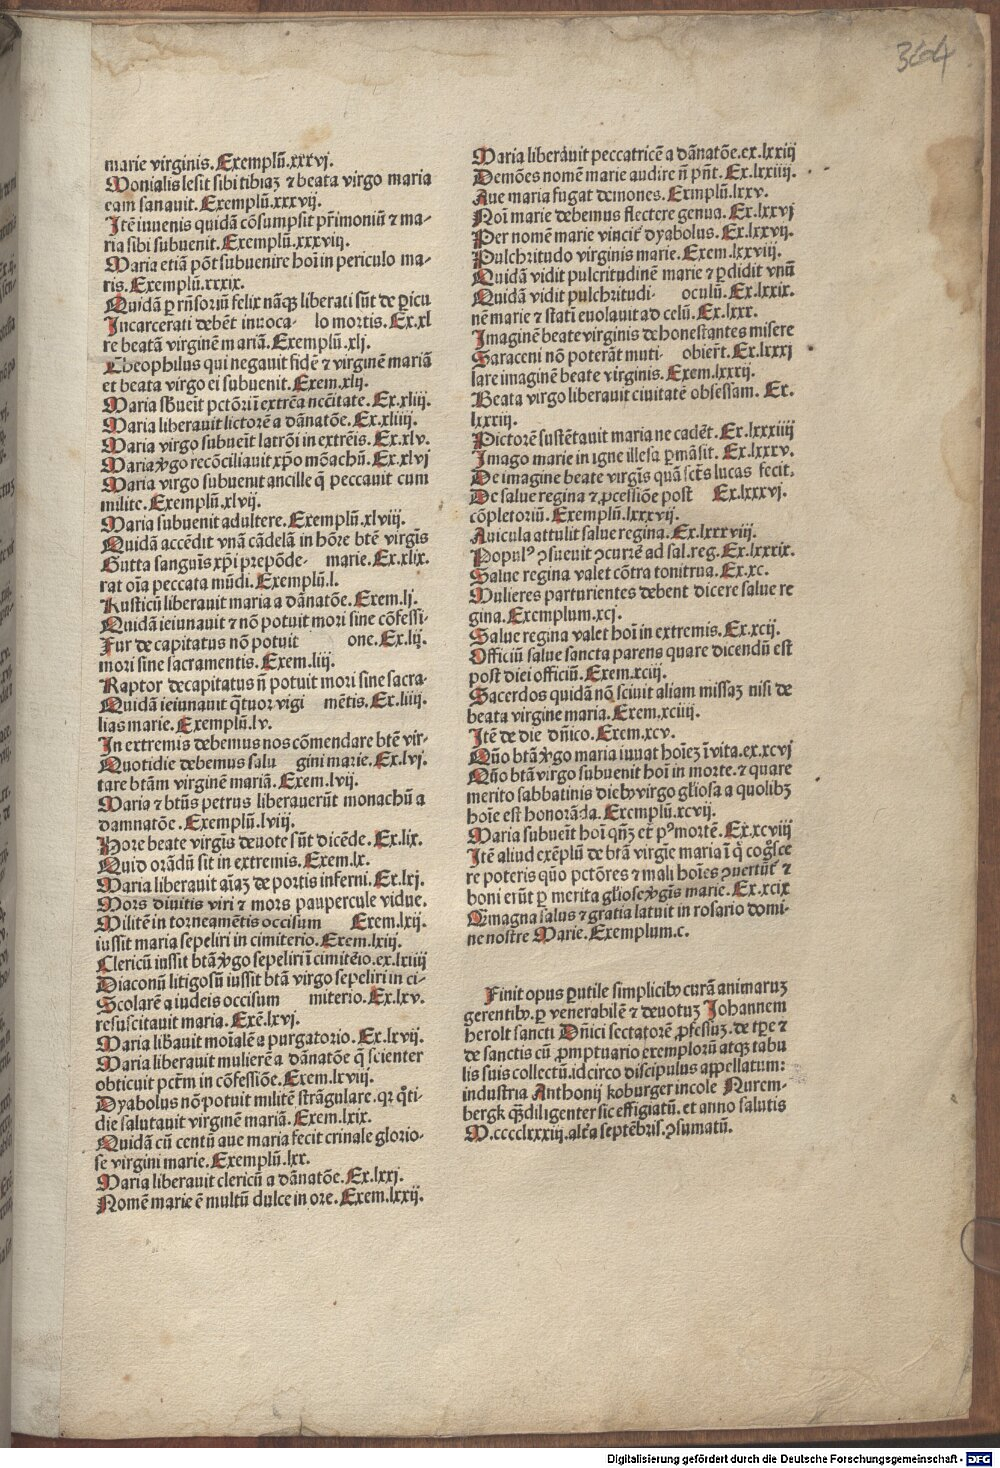 364
marie virginis. Exemplū.xxxvj.
Monialis lesit sibi tibiaʒ ⁊ beata virgo maria
eam sanauit. Exemplū.xxxvij.
Itē iuuenis quidā cōsumpsit pr̄imoniū ⁊ ma-
ria sibi subuenit. Exemplū.xxxviij.
Maria etiā pōt subuenire hoi in periculo ma-
ris. Exemplū.xxxix.
Quidā ꝑ rñsoriū felix nāqꝫ liberati sūt de ꝑicu
Incarcerati debēt inuoca- lo mortis. Ex.xl
re beatā virginē mariā. Exemplū.xlj.
Theophilus qui negauit fidē ⁊ virginē mariā
et beata virgo ei subuenit. Exem.xlij.
Maria sbueīt pctōri ī extrēa ncc̄itate. Ex.xliij.
Maria liberauit lictorē a dānatōe. Ex.xliiij.
Maria virgo subueīt latrōi in extrēis. Ex.xlv.
Maria ꝟgo recōciliauit xp̄o mōachū. Ex.xlvj
Maria virgo subuenit ancille q̄ peccauit cum
milite. Exemplū.xlvij.
Maria subuenit adultere. Exemplū.xlviij.
Quidā accēdit vnā cādelā in hōre btē virgīs
Gutta sanguīs xp̄i prepōde- marie. Ex.xlix.
rat oīa peccata mūdi. Exemplū.l.
Rusticū liberauit maria a dānatōe. Exem.lj.
Quidā ieiunauit ⁊ nō potuit mori sine cōfessi-
Fur decapitatus nō potuit one. Ex.lij.
mori sine sacramentis. Exem.liij.
Raptor decapitatus n̄ potuit mori sine sacra-
Quidā ieiunauit q̄tuor vigi mētis. Ex.liiij.
lias marie. Exemplū.lv.
In extremis debemus nos cōmendare btē vir-
Quotidie debemus salu gini marie. Ex.lvj.
tare btām virginē mariā. Exem.lvij.
Maria ⁊ btūs petrus liberauerūt monachū a
damnatōe. Exemplū.lviij.
Hore beate virgīs deuote sūt dicēde. Ex.lix.
Quid orādū sit in extremis. Exem.lx.
Maria liberauit aīaʒ de portis inferni. Ex.lxj.
Mors diuitis viri ⁊ mors paupercule vidue.
Militē in torneamētis occisum Exem.lxij.
iussit maria sepeliri in cimiterio. Exem.lxiij.
Clericū iussit btā ꝟgo sepeliri ī cimiterio.ex.lxiiij
Diaconū litigosū iussit btā virgo sepeliri in ci-
Scolarē a iudeis occisum miterio. Ex.lxv.
resuscitauit maria. Exē.lxvj.
Maria libauit moīalē a purgatorio. Ex.lxvij.
Maria liberauit mulierē a dānatōe q̄ scienter
obticuit pctm̄ in cōfessiōe. Exem.lxviij.
Dyabolus nō potuit militē strāgulare. qꝛ q̄ti-
die salutauit virginē mariā. Exem.lxix.
Quidā cū centū aue maria fecit crinale glorio-
se virgini marie. Exemplū.lxx.
Maria liberauit clericū a dānatōe. Ex.lxxj.
Nomē marie ē multū dulce in ore. Exem.lxxij.
Maria liberauit peccatricē a dānatōe.ex.lxxiij
Demōes nomē marie audire n̄ pn̄t. Ex.lxxiiij.
Aue maria fugat demones. Exmplū.lxxv.
Noi marie debemus flectere genua. Ex.lxxvj
Per nomē marie vincit dyabolus. Ex.lxxvij.
Pulchritudo virginis marie. Exem.lxxviij.
Quidā vidit pulcritudinē marie ⁊ ꝑdidit vnū
Quidā vidit pulchritudi- oculū. Ex.lxxix.
nē marie ⁊ statī euolauit ad celū. Ex.lxxx.
Imaginē beate virginis dehonestantes misere
Saraceni nō poterāt muti- obierūt. Ex.lxxxj
lare imaginē beate virginis. Exem.lxxxij.
Beata virgo liberauit ciuitatē obsessam. Ex.
lxxxiij.
Pictorē sustētauit maria ne cadēt. Ex.lxxxiiij
Imago marie in igne illesa ꝑmāsit. Ex.lxxxv.
De imagine beate virgīs quā sctūs lucas fecit.
De salue regina ⁊ ꝓcessiōe post Ex.lxxxvj.
cōpletoriū. Exemplū.lxxxvij.
Auicula attulit salue regina. Ex.lxxxviij.
Populꝰ ꝯsueuit ꝯcurrē ad sal.reg. Ex.lxxxix.
Salue regina valet cōtra tonitrua. Ex.xc.
Mulieres parturientes debent dicere salue re
gina. Exemplum.xcj.
Salue regina valet hoi in extremis. Ex.xcij.
Officiū salue sancta parens quare dicendū est
post diei officiū. Exem.xciij.
Sacerdos quidā nō sciuit aliam missaʒ nisi de
beata virgine maria. Exem.xciiij.
Itē de die dn̄ico. Exem.xcv.
Qūo btā ꝟgo maria iuuat hoīeʒ ī vita.ex.xcvj
Qūo btā virgo subuenit hoi in morte. ⁊ quare
merito sabbatinis dieb₉ virgo gl̄iosa a quolibʒ
hoīe est honorāda. Exemplū.xcvij.
Maria subueīt hoi qn̄ʒ et pꝰ mortē. Ex.xcviij
Itē aliud exēplū de btā virgīe maria ī q̄ coḡsce
re poteris quō pctōres ⁊ mali hoīes ꝯuertūt ⁊
boni erūt ꝑ merita gl̄iose ꝟgīs marie. Ex.xcix
Q̄ magna salus ⁊ gratia latuit in rosario domi-
ne nostre Marie. Exemplum.c.
Finit opus ꝑutile simplicib₉ curā animaruʒ
gerentib₉. ꝑ venerabilē ⁊ deuotuʒ Johannem
herolt sancti Dn̄ici sectatorē ꝓfessuʒ. de tp̄e ⁊
de sanctis cū ꝓmptuario exemplorū atqʒ tabu
lis suis collectū. idcirco discipulus appellatum:
industria Anthonij koburger incole Nurem-
bergk qʒdiligenter sic effigiatū. et anno salutis
M.cccclxxxiij. alt̄a septēbris. ꝯsumatū.
Digitalisierung gefördert durch die Deutsche Forschungsgemeinschaft - DFG